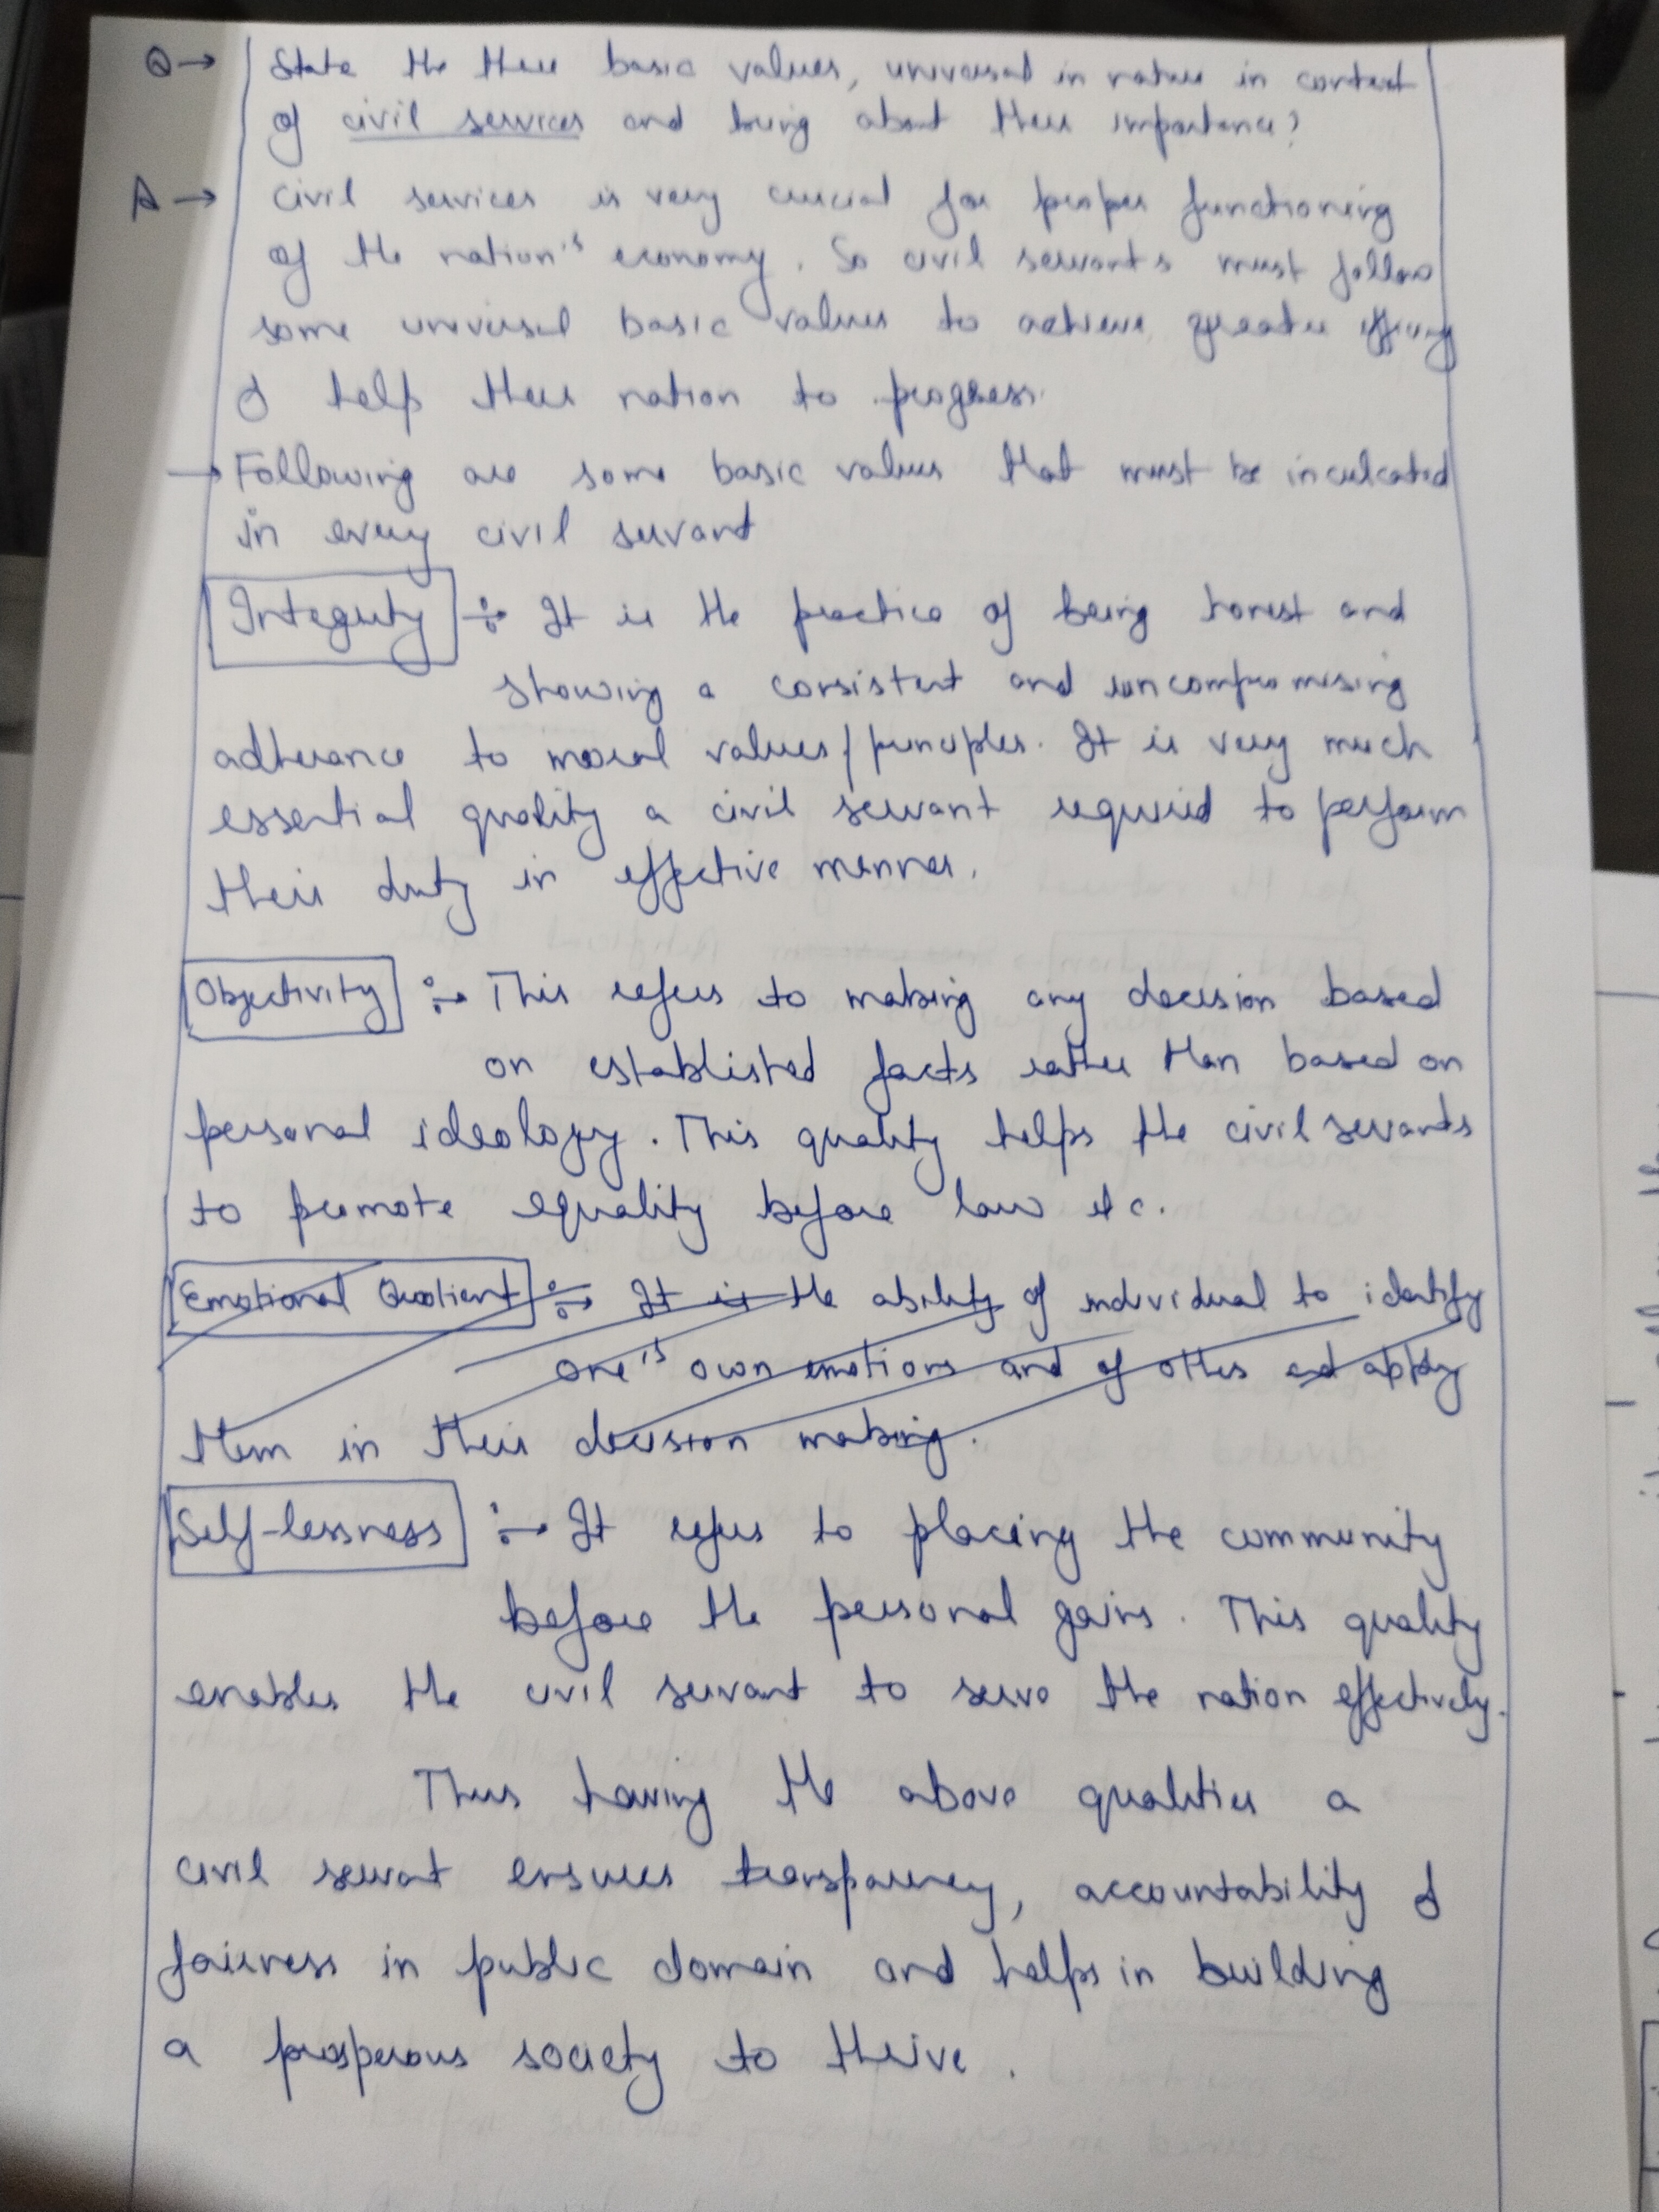 Q→ State the three basic values, universal in nature in context
of civil services and bring about their importance?
A→ Civil services is very crucial for proper functioning
of the nation's economy. So civil servants must follow
some universal basic values to achieve greater
& help their nation to progress.
→ Following are some basic values that must be inculcated
in every civil servant
Integrity :→ It is the practice of being honest and
showing a consistent and uncompromising
adherance to moral values/principles. It is very much
essential quality a civil servant required to perform
their duty in effective manner.
Objectivity :→ This refers to making any decision based
on established facts rather than based on
personal ideology. This quality helps the civil servants
to promote equality before law etc.
Emotional Quotient :→ It is the ability of individual to identify
one's own emotions and of others and apply
them in their decision making.
Self-lessness :→ It refers to placing the community
before the personal gains. This quality
enables the civil servant to serve the nation effectively.
Thus having the above qualities a
civil servant ensures transparency, accountability &
fairness in public domain and helps in building
a prosperous society to thrive.